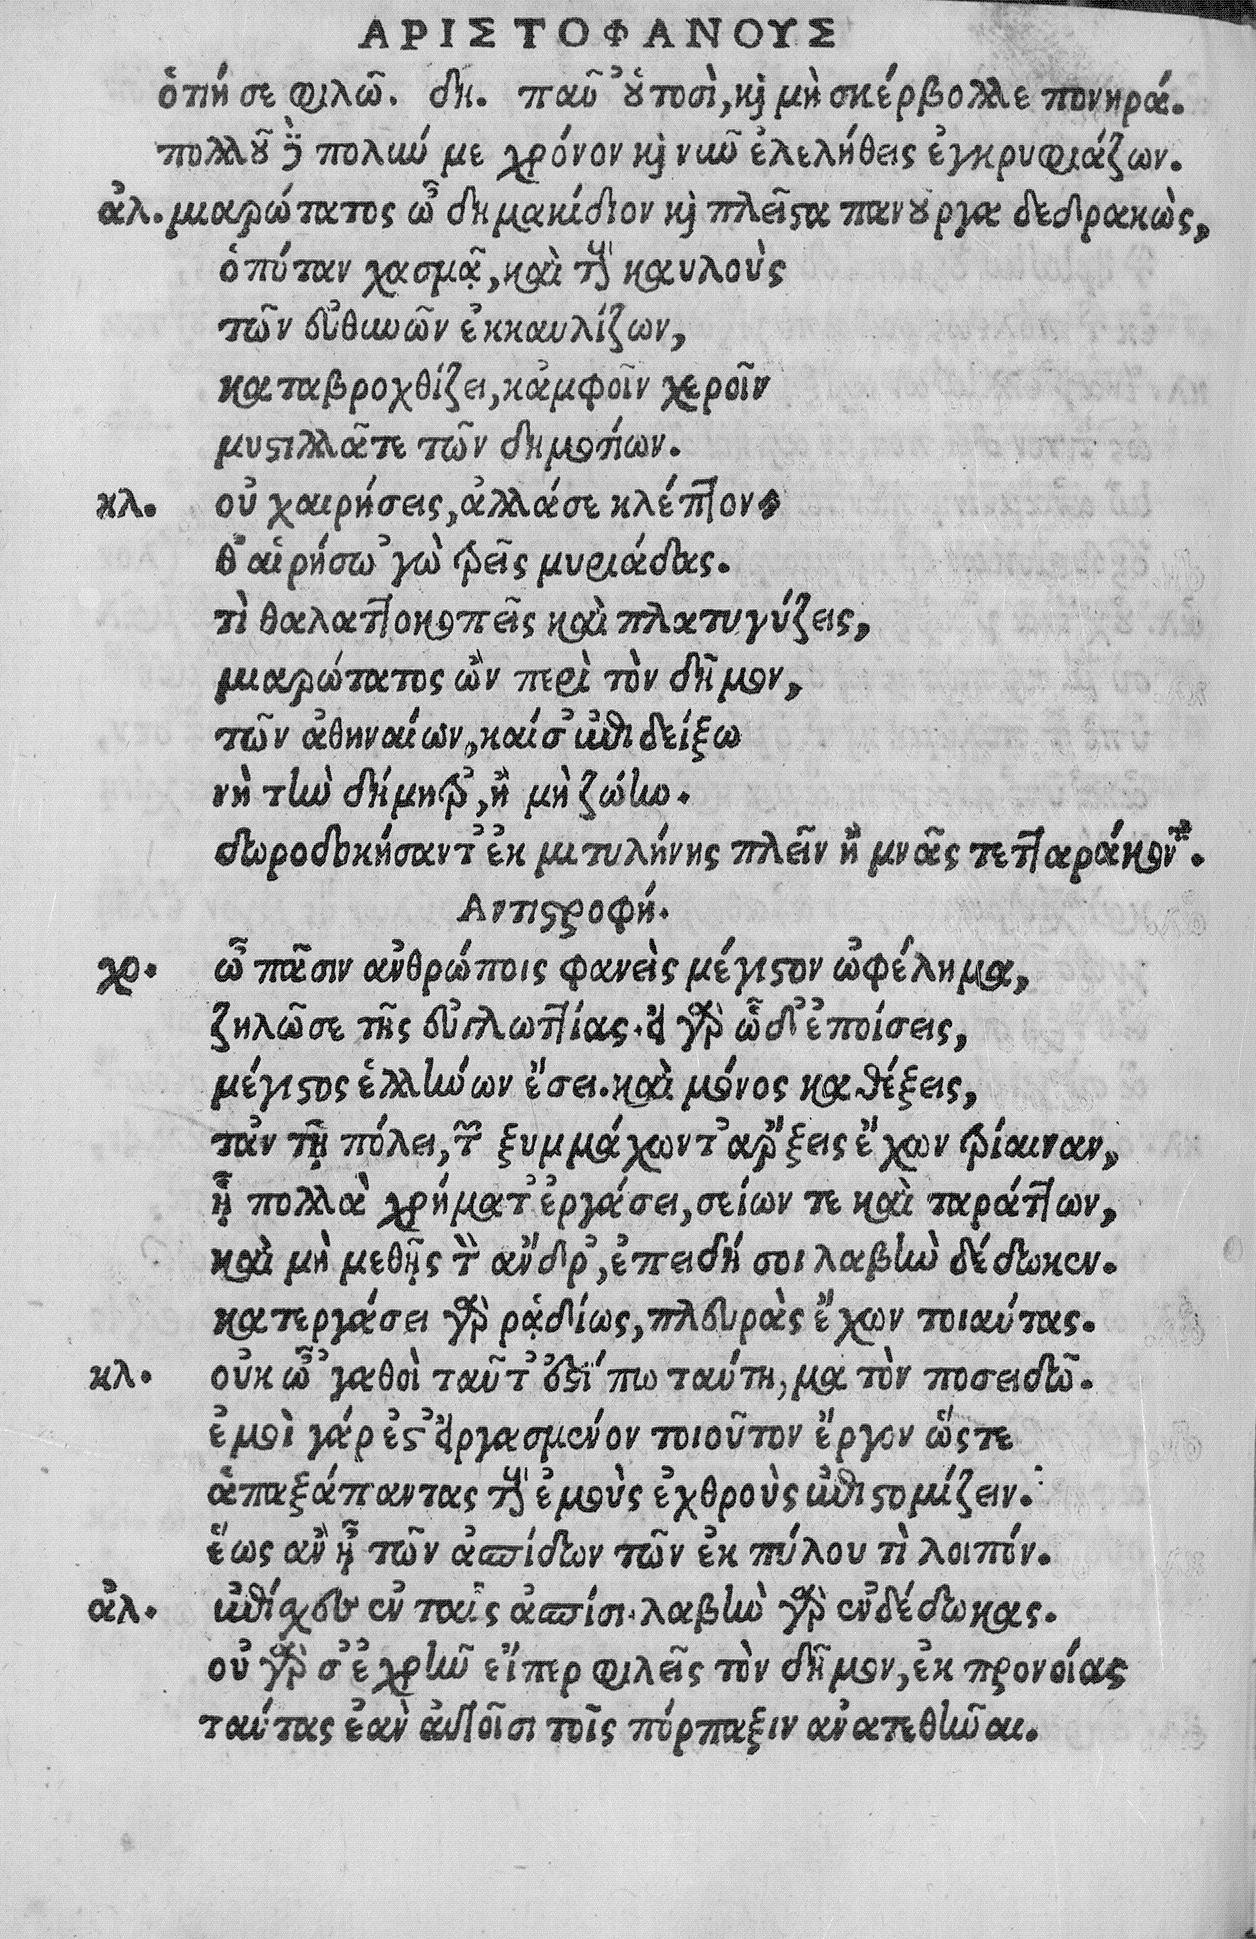 ΑΡΙΣΤΟΦΑΝΟΥΣ
ὁτιή σε φιλῶ. δη. παῦ' οὑτοσὶ, καὶ μὴ σκέρβολλε πονηρά.
πολλοῦ δὲ πολύν με χρόνον καὶ νῦν ἐλελήθεις ἐγκρυφιάζων.
ἀλ. μιαρώτατος ὦ δημακίδιον καὶ πλεῖστα πανοῦργα δεδρακὼς,
ὁπόταν χασμᾷ, καὶ τοὺς καυλοὺς
τῶν εὐθυνῶν ἐκκαυλίζων,
καταβροχθίζει, κἀμφοῖν χεροῖν
μυστιλλᾶτε τῶν δημοσίων.
κλ. οὐ χαιρήσεις, ἀλλάσε κλέπτον
θ' αἱρήσω 'γὼ τρεῖς μυριάδας.
τὶ θαλαττοκοπεῖς καὶ πλατυγύζεις,
μιαρώτατος ὢν περὶ τὸν δῆμον,
τῶν ἀθηναίων, καίσ' ἐπιδείξω
νὴ τὴν δήμητρ', ἢ μὴ ζώην.
δωροδοκήσαντ' ἐκ μιτυλήνης πλεῖν ἢ μνᾶς τετταράκοντα.
Αντιστροφή.
χο. ὦ πᾶσιν ἀνθρώποις φανεὶς μέγιστον ὠφέλημα,
ζηλῶσε τῆς εὐγλωττίας. εἰ γὰρ ὧδ' ἐποίσεις,
μέγιστος ἑλλήνων ἔσει. καὶ μόνος καθέξεις,
τἀν τῇ πόλει, τῶν ξυμμάχων τ' ἄρξεις ἔχων τρίαιναν,
ᾗ πολλὰ χρήματ' ἐργάσει, σείων τε καὶ ταράττων,
καὶ μὴ μεθῇς τὸν ἄνδρ', ἐπειδή σοι λαβὴν δέδωκεν.
κατεργάσει γὰρ ῥᾳδίως, πλευρὰς ἔχων τοιαύτας.
κλ. οὐκ ὦ 'γαθοὶ ταῦτ' ἐστί πω ταύτη, μα τὸν ποσειδῶ.
ἐμοὶ γάρ ἐστ' εἰργασμένον τοιοῦτον ἔργον ὥστε
ἁπαξάπαντας τοὺς ἐμοὺς ἐχθροὺς ἐπιστομίζειν.
ἕως ἂν ᾖ τῶν ἀσπίδων τῶν ἐκ πύλου τὶ λοιπόν.
ἀλ. ἐπίσχευ ἐν ταῖς ἀσπίσι. λαβὴν γὰρ ἐνδέδωκας.
οὐ γὰρ σ' ἐχρῆν εἴπερ φιλεῖς τὸν δῆμον, ἐκ προνοίας
ταύτας ἐαν αὐτοῖσι τοῖς πόρπαξιν ἀνατεθῆναι.